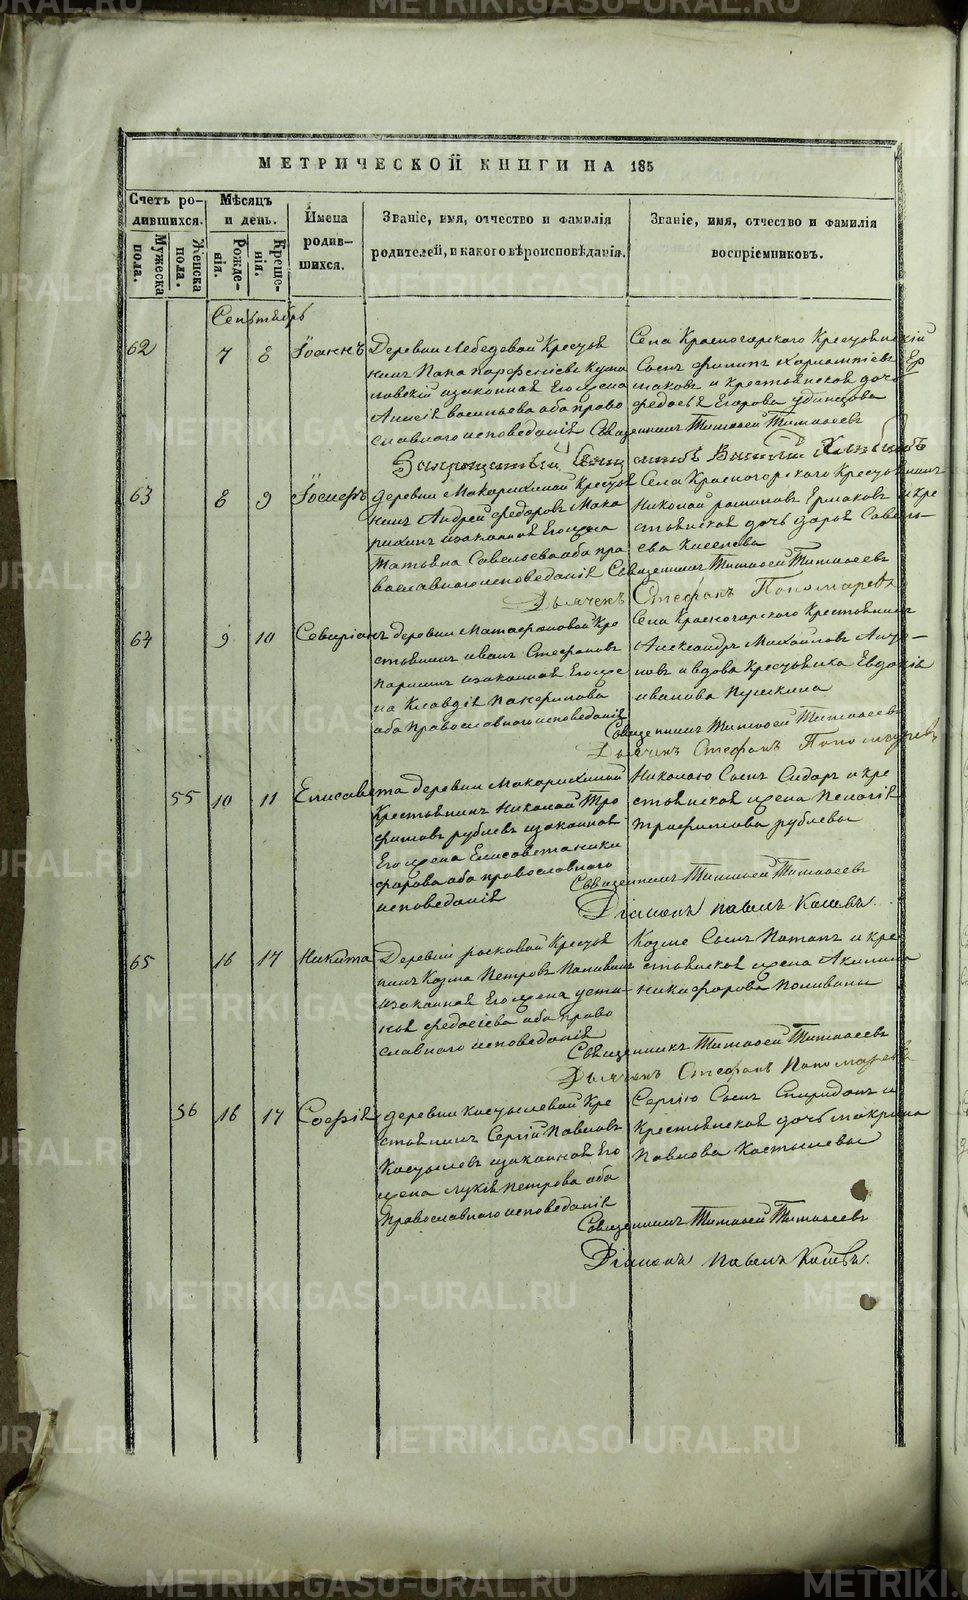 МЕТРИЧЕСКОЙ КНИГИ НА 185
Счетъ ро-
дившихся.
Мужеска
пола.
Женска
пола.
Мѣсяцъ
и день.
Рожде-
нія.
Креще-
нія.
Имена
родив-
шихся.
Званіе, имя, отчество и фамилія
родителей, и какого вѣроисповѣданія.
Званіе, имя, отчество и фамилія
воспріемниковъ.
Сентябрь
62 7 8 Іоаннъ
Деревни Лебедевой Крестья
нинъ
Его жена
Васильева оба право
славнаго исповеданія
Села Красногорскаго Крестьянскій
Сынъ Филипъ Ер
маковъ и крестьянская дочь
Федосья Егорова Удинцова
Священникъ Тимофей Тимофеевъ
63 8 9 Іосифъ
деревни Макарихиной Крестья
нинъ Андрей Федоровъ Мака
рихинъ изаконная Его жена
Татьяна Савельева оба пра
вославнаго исповеданія
Села Красногорскаго Крестьянинъ
Николай Ермаковъ и кре
стьянская дочь Дарья Савель-
ева Киселева
Священникъ Тимофей Тимофеевъ
Дьячекъ Стефанъ Пономаревъ
64 9 10 Севиріанъ
деревни Матафоновой Кре
стьянинъ Иванъ Стефановъ
изаконная Его же
на Клавдія Панфилова
оба Православнаго исповеданія
Села Красногорскаго Крестьянинъ
Александръ Михайловъ
новъ и вдова Крестьянка Евдокія
Иванова Пушкина
Священникъ Тимофей Тимофеевъ
Дьячекъ Стефанъ Пономаревъ
55 10 11 Елисавета
деревни Макарихиной
Крестьянинъ Николай Тро
фимовъ Рублевъ изаконная
Его жена Елисавета Ники
форова оба православнаго
исповеданія
Николаю Сынъ Сидоръ и кре
стьянская жена Пелагія
Трофимова Рублевы
Священникъ Тимофей Тимофеевъ
Діаконъ Павелъ
65 16 17 Никита
Деревни Крестья
нинъ Козма Петровъ
изаконная Его жена Усти
нья Федосіева оба право
славнаго исповеданія
Козме Сынъ Потапъ и кре
стьянская жена Акилина
Никифорова
Священникъ Тимофей Тимофеевъ
Дьячекъ Стефанъ Пономаревъ
56 16 17 Софія
деревни Костылевой Кре
стьянинъ Сергій Павловъ
Костылевъ изаконная Его
жена Лукія Петрова оба
Православнаго исповеданія
Сергію Сынъ Спиридонъ и
Крестьянская дочь Макрина
Павлова Костылевы
Священникъ Тимофей Тимофеевъ
Діаконъ Павелъ
METRIKI.GASO-URAL.RU